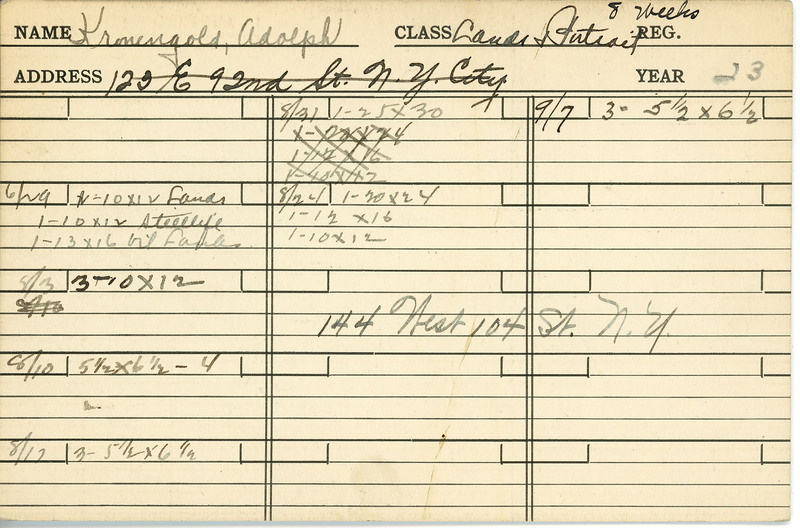 8 weeks
NAME Kronengold, Adolph CLASS Lands & Portrait REG.
ADDRESS 122 E 92nd St. N. Y. City YEAR 23
6/29 10x12 Lands
1-10x12 Stilllife
1-13x16 oil Lands
8/3 3-10x12
8/10
8/10 5 1/2 x 6 1/2 - 4
8/17 3- 5 1/2 x 6 1/2
8/31 1-25x30
1-20x24
1-12x16
1-10x12
8/24 1-20x24
1-12 x16
1-10x12
144 West 104 St. N. Y.
9/7 3- 5 1/2 x 6 1/2